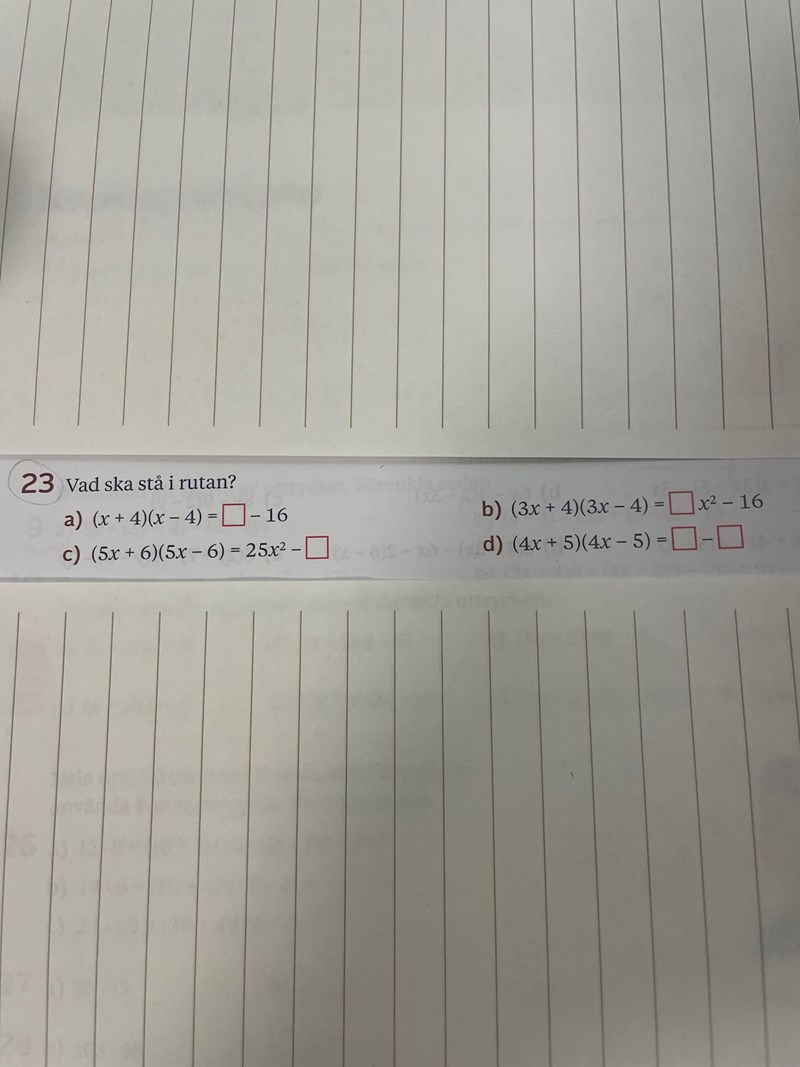 23 Vad ska stå i rutan?
a) (x + 4)(x − 4) = □ − 16
b) (3x + 4)(3x − 4) = □ x² − 16
c) (5x + 6)(5x − 6) = 25x² − □
d) (4x + 5)(4x − 5) = □ − □